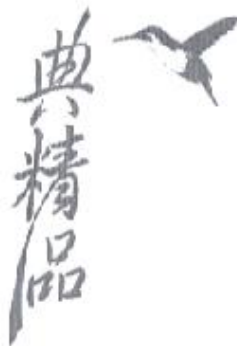 典精品